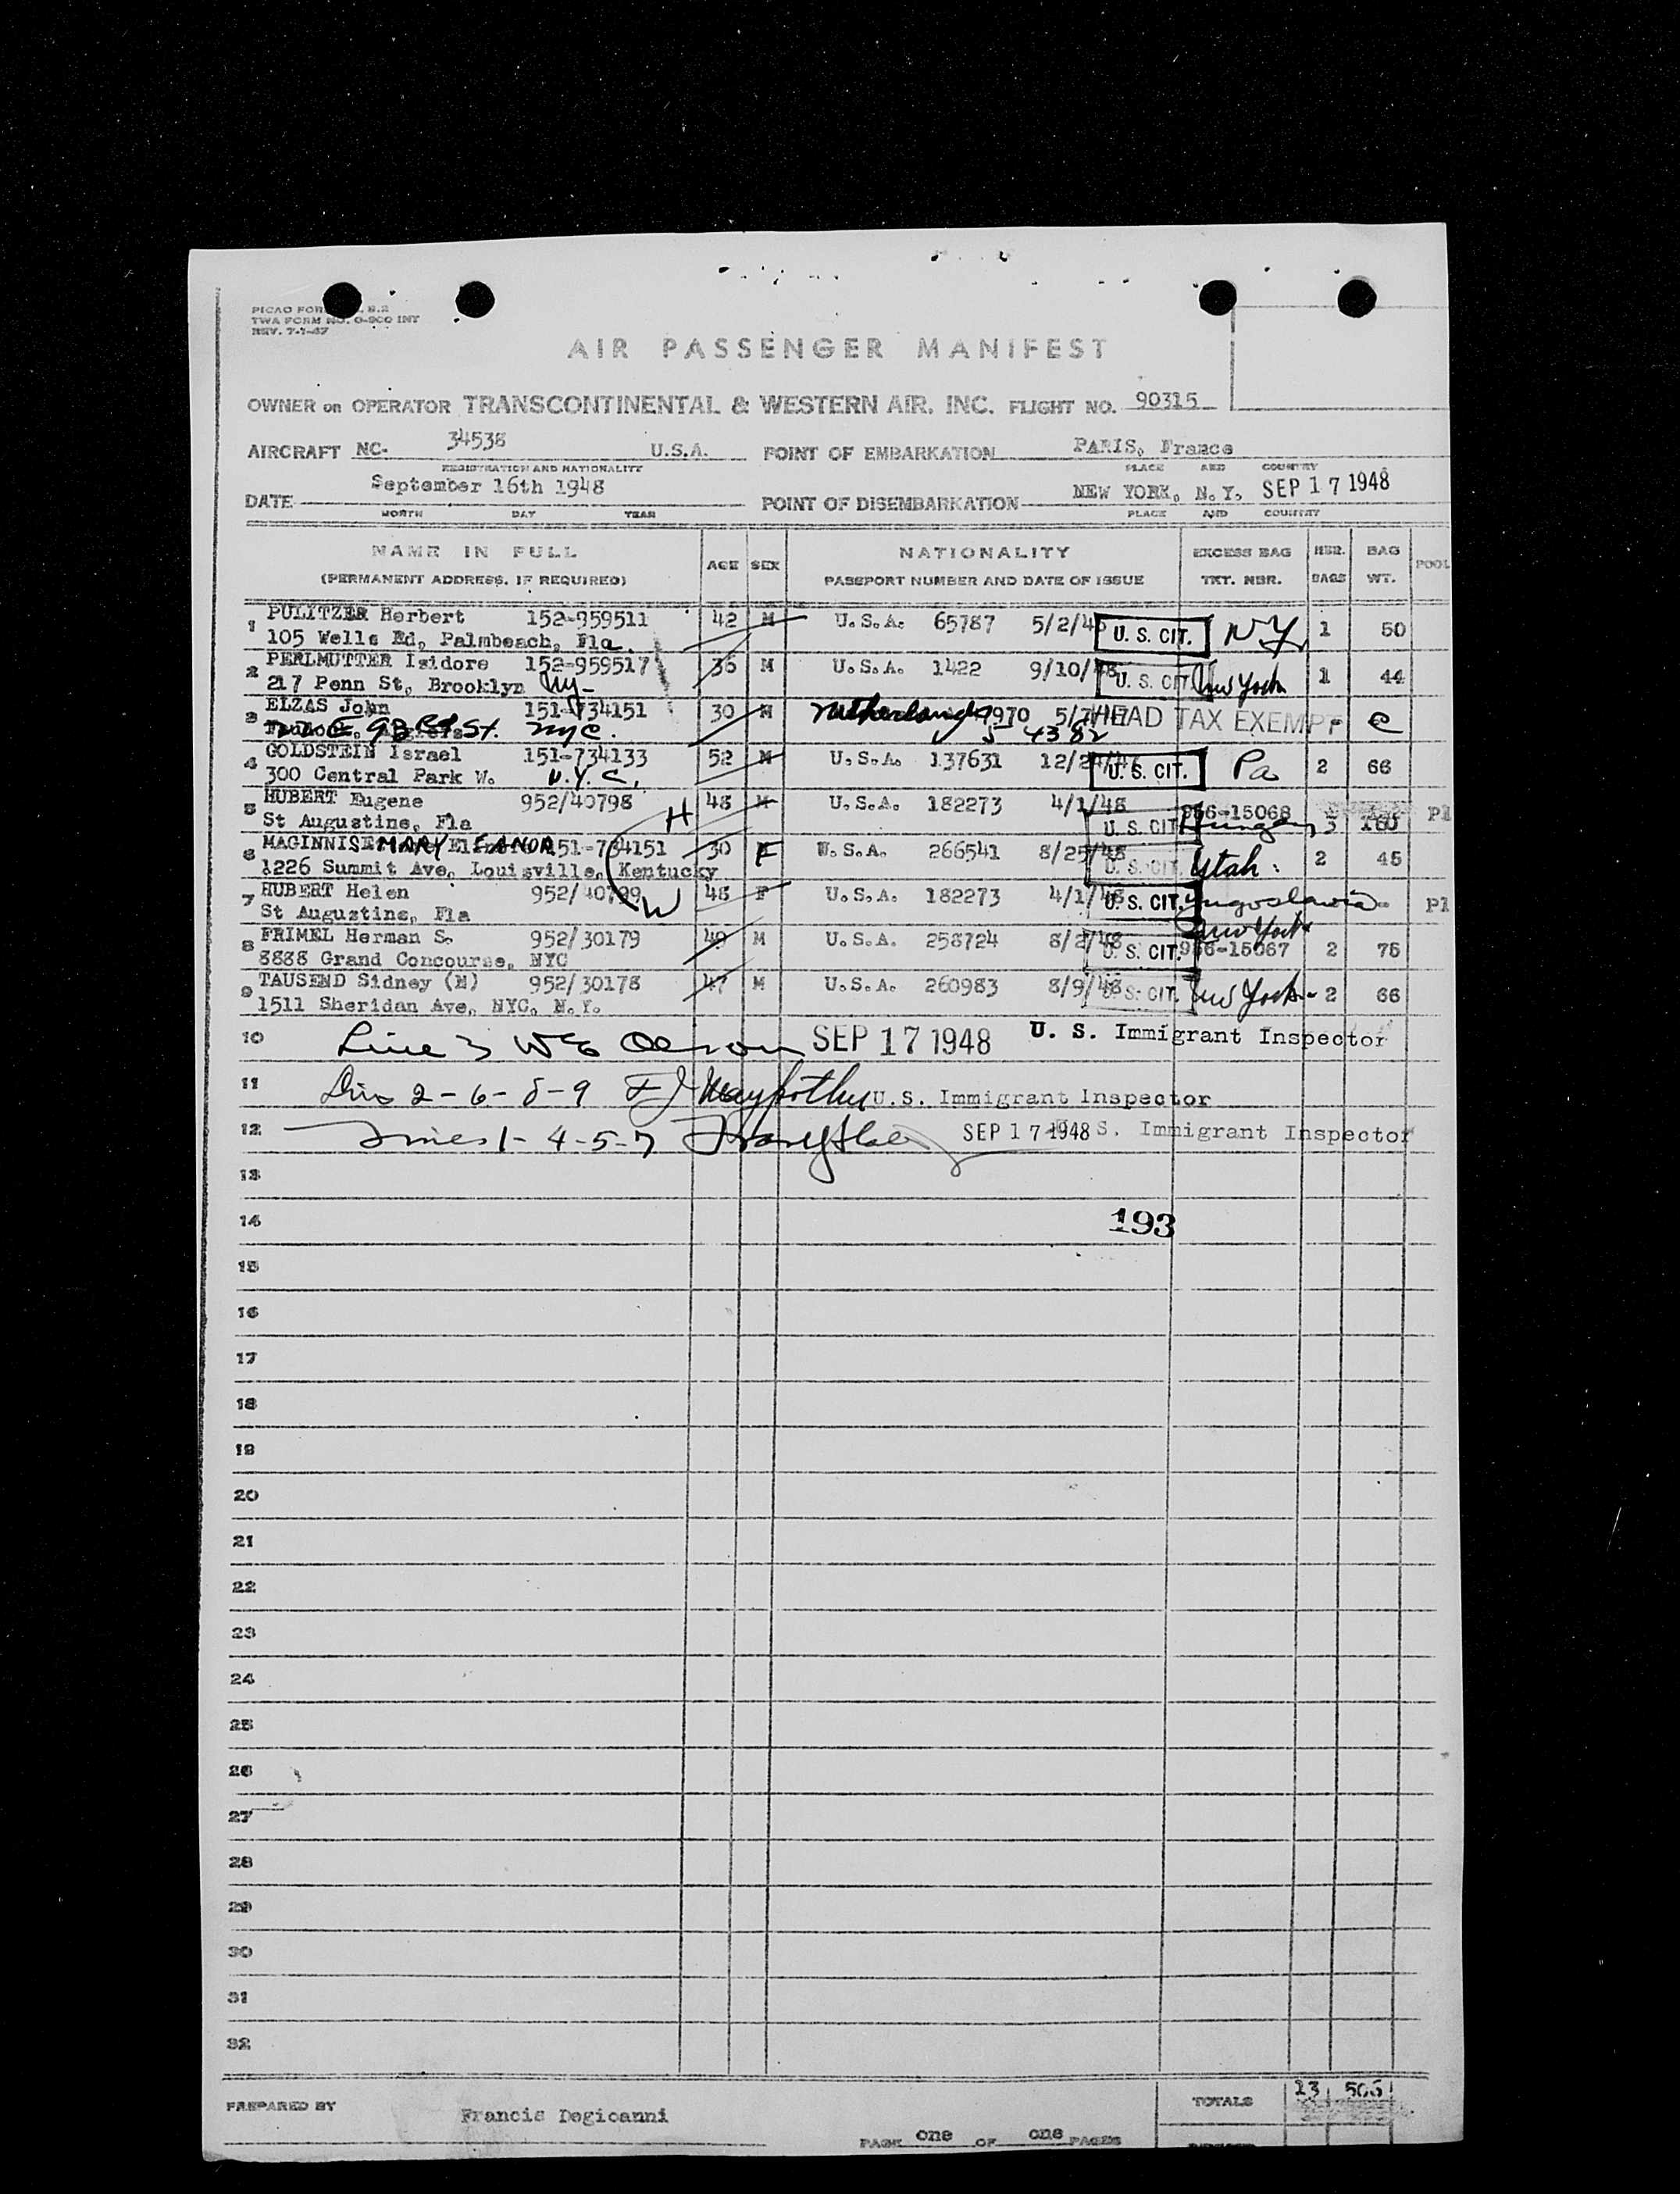 TWA FORM NO. 0-900 INT
REV. 7-1-47
AIR PASSENGER MANIFEST
OWNER or OPERATOR TRANSCONTINENTAL & WESTERN AIR. INC. FLIGHT NO. 90315
AIRCRAFT NC- 34538 U.S.A. POINT OF EMBARKATION PARIS, France
REGISTRATION AND NATIONALITY PLACE AND COUNTRY
DATE September 16th 1948 POINT OF DISEMBARKATION NEW YORK, N.Y. SEP 17 1948
MONTH DAY YEAR PLACE AND COUNTRY
NAME IN FULL AGE SEX NATIONALITY EXCESS BAG NBR. BAG POOL
(PERMANENT ADDRESS, IF REQUIRED) PASSPORT NUMBER AND DATE OF ISSUE TKT. NBR. BAGS WT.
1 PULITZER Herbert 152-959511 42 M U.S.A. 65787 5/2/4 U. S. CIT. NY 1 50
105 Wells Rd, Palmbeach, Fla.
2 PERLMUTTER Isidore 152-959517 36 M U.S.A. 1422 9/10/ U. S. CIT. New York 1 44
217 Penn St, Brooklyn NY-
3 ELZAS John 151-734151 30 M Netherlands 9970 5/7/ HEAD TAX EXEMPT
E 93 Rd St. NYC.
4 GOLDSTEIN Israel 151-734133 52 M U.S.A. 137631 12/2 U. S. CIT. Pa 2 66
300 Central Park W. N.Y.C.
5 HUBERT Eugene 952/40798 H 48 M U.S.A. 182273 4/1/48 U. S. CIT. 956-15068 Hungary 3 Pl
St Augustine, Fla
6 MAGINNIS MARY ELEANOR 151-734151 30 F U.S.A. 266541 8/25/48 U. S. CIT. Utah 2 45
1226 Summit Ave, Louisville, Kentucky
7 HUBERT Helen 952/40799 W 48 F U.S.A. 182273 4/1/48 U. S. CIT. Yugoslavia Pl
St Augustine, Fla
8 FRIMEL Herman S. 952/30179 49 M U.S.A. 258724 8/2/48 U. S. CIT. New York 956-15067 2 75
8888 Grand Concourse, NYC
9 TAUSEND Sidney (M) 952/30178 47 M U.S.A. 260983 8/9/48 U. S. CIT. New York 2 66
1511 Sheridan Ave, NYC, N.Y.
10 Line 3 SEP 17 1948 U. S. Immigrant Inspector
11 2-6-8-9 U.S. Immigrant Inspector
12 Lines 1-4-5-7 SEP 17 1948 S. Immigrant Inspector
13
14 193
15
16
17
18
19
20
21
22
23
24
25
26
27
28
29
30
31
32
PREPARED BY Francis Degioanni TOTALS 13
PAGE one OF one PAGES